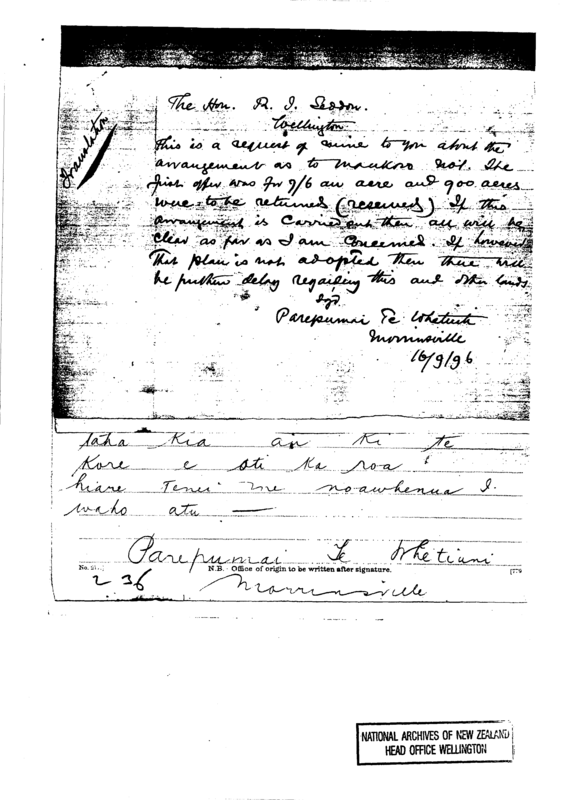 Translation
The Hon. R. J. Seddon.
Wellington
This is a request of mine to you about the
arrangement as to Maukoro No1. The
first offer was for 7/6 an acre and 900 acres
were to be returned (reserved) If this
arrangement is carried out then all will be
clear as far as I am concerned. If however
that plan is not adopted then there will
be further delay regarding this and other lands
Sgd
Parepumai Te Whetuiti
Morrinsville
16/9/96
taha kia au ki te
Kore e oti Ka roa
hiare Tenei me noawhenua I
waho atu —
Parepumai Te Whetiuni
N.B. Office of origin to be written after signature.
2 36 Morrinsville
NATIONAL ARCHIVES OF NEW ZEALAND
HEAD OFFICE WELLINGTON